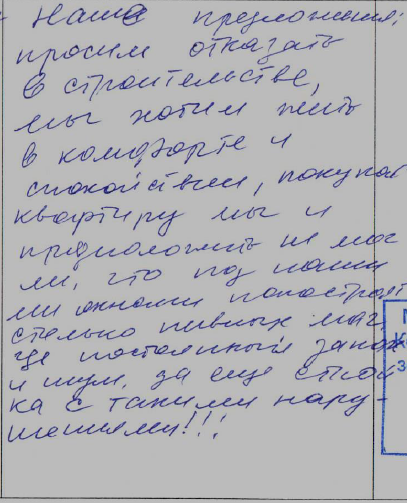 Наше предложения:
просим отказать
в строительстве,
мы хотим жить
в комфорте и
спокойствии, покупая
квартиру мы и
предположить не мог
ли, что под наши
ми окнами понастроят
столько пивных маг,
где постоянный запах
и шум, да еще строй
ка с такими нару-
шениями!!!